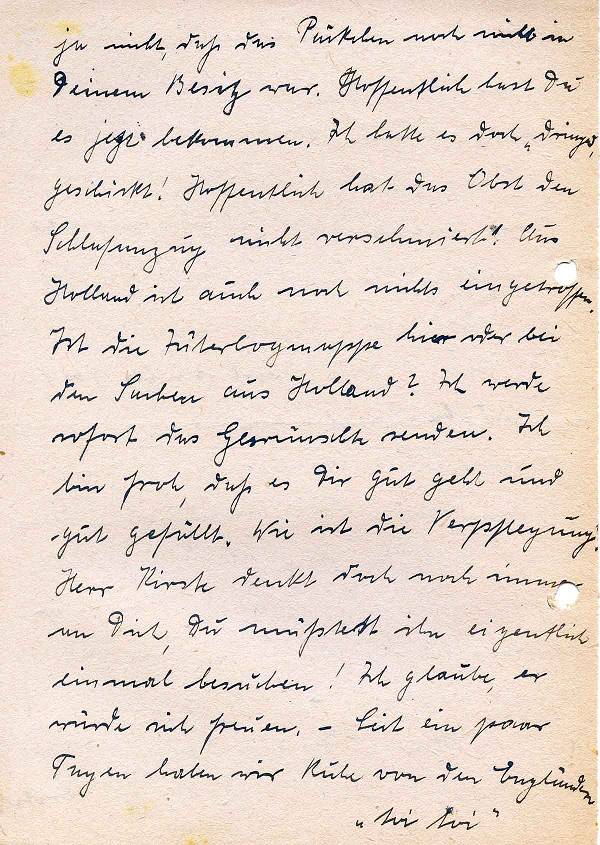 ja nicht, daß das Päckchen noch nicht in
Deinem Besitz war. Hoffentlich hast Du
es jetzt bekommen. Ich hatte es doch „dringd.
geschickt! Hoffentlich hat das Obst den
Schlafanzug nicht verschmiert! Aus
Holland ist auch noch nichts eingetroffen.
Ist die Jüterbogmappe hier oder bei
den Sachen aus Holland? Ich werde
sofort das Gewünschte senden. Ich
bin froh, daß es Dir gut geht und
gut gefällt. Wie ist die Verpflegung?
Herr Kirste denkt doch noch immer
an Dich, Du müßtest ihn eigentlich
einmal besuchen! Ich glaube, er
würde sich freuen. – Seit ein paar
Tagen haben wir Ruhe von den Engländern
„toi toi"